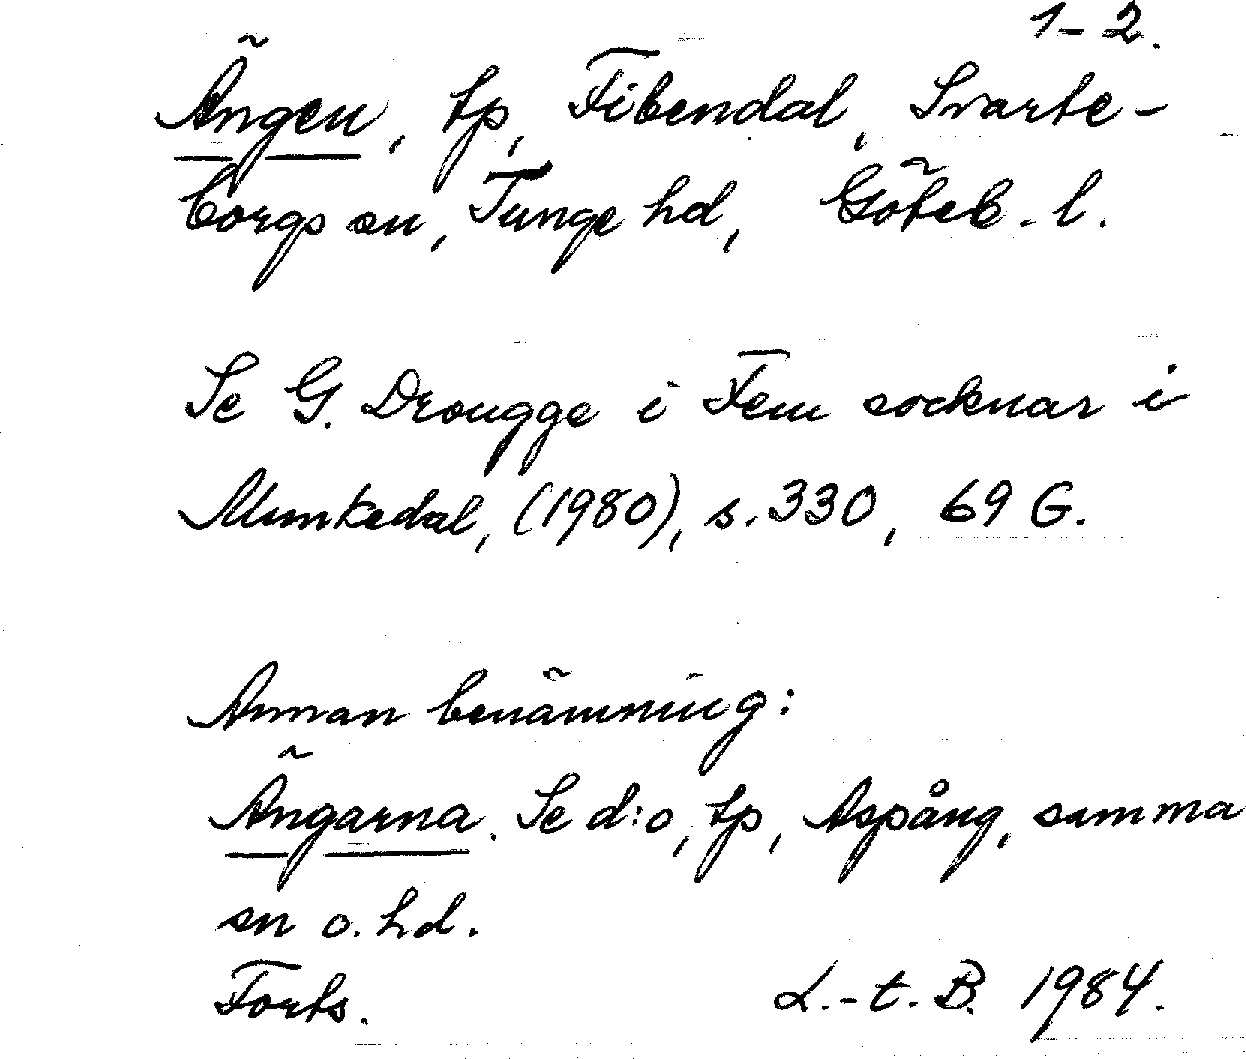 1-2.
Ängen, tp, Fibendal, Svarte-
borgs sn, Tunge hd, Göteb.l.
Se G. Drougge i Fem socknar i
Munkedal, (1980), s.330, 69 G.
Annan benämning:
Ängarna. Se d:o, tp, Aspång, samma
sn o. hd.
Forts. L.-t. B. 1984.